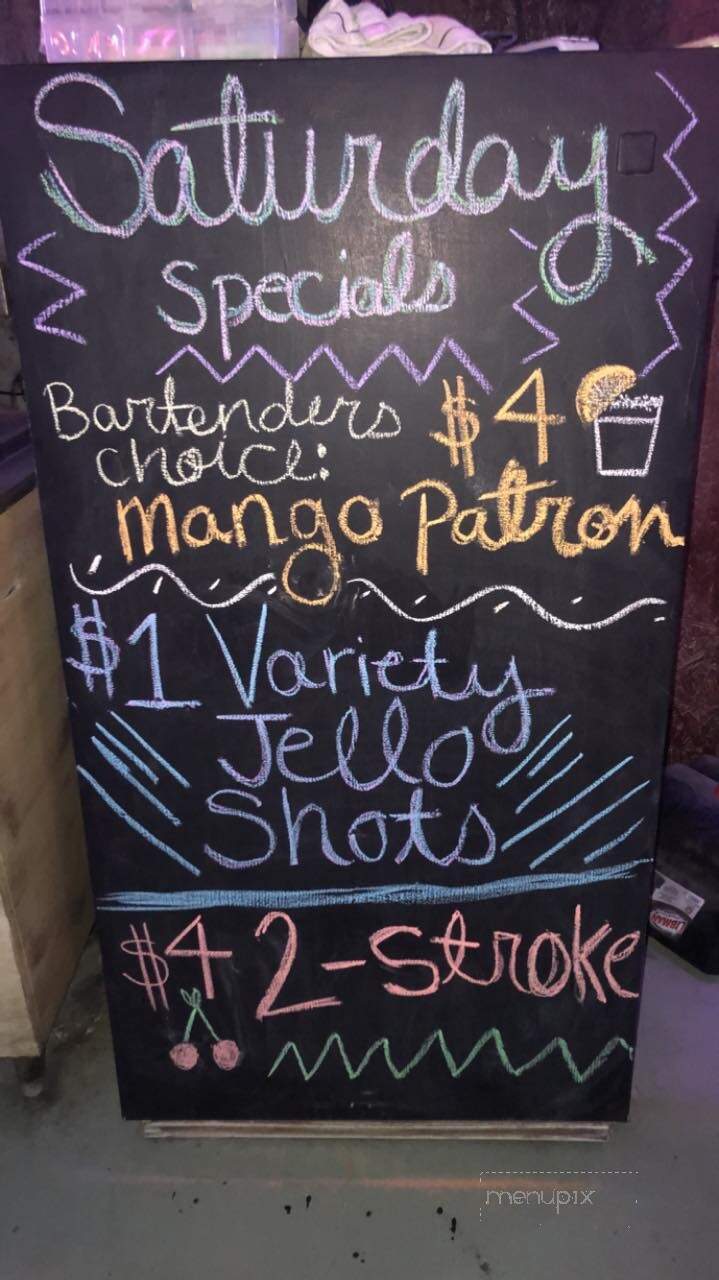 Saturday
Specials
Bartenders $4
Choice:
Mango Patron
$1 Variety
Jello
Shots
$4 2-stroke
menupix